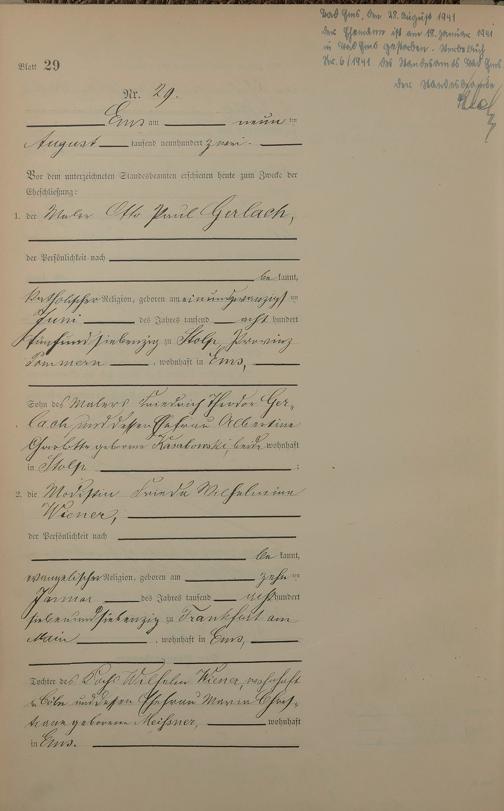 Bad Ems, den 28. August 1941
der Ehemann ist am 18. Januar 1941
in Bad Ems gestorben. Sterbebuch
Nr. 6/1941 des Standesamts Bad Ems
Der Standesbeamte
Blatt 29
Nr. 29.
Ems am neun ten
August tausend neunhundert zwei.
Vor dem unterzeichneten Standesbeamten erschienen heute zum Zwecke der
Eheschließung:
1. der Maler Otto Paul Gerlach,
der Persönlichkeit nach
be kannt,
katholischer Religion, geboren am einundzwanzigsten
Juni des Jahres tausend acht hundert
fünfundsiebenzig zu Stolp, Provinz
Pommern, wohnhaft in Ems,
Sohn des Malers Friedrich Theodor Ger-
lach und dessen Ehefrau Albertine
Charlotte geborene beide wohnhaft
in Stolp ;
2. die Modistin Frieda Wilhelmine
Wiener,
der Persönlichkeit nach
be kannt,
evangelischer Religion, geboren am zehn ten
Januar des Jahres tausend acht hundert
siebenundsiebenzig zu Frankfurt am
Main, wohnhaft in Ems,
Tochter des Kochs Wilhelm Wiener, wohnhaft
in Cöln und dessen Ehefrau Maria Chris-
tiane geborene Meißner, wohnhaft
in Ems.